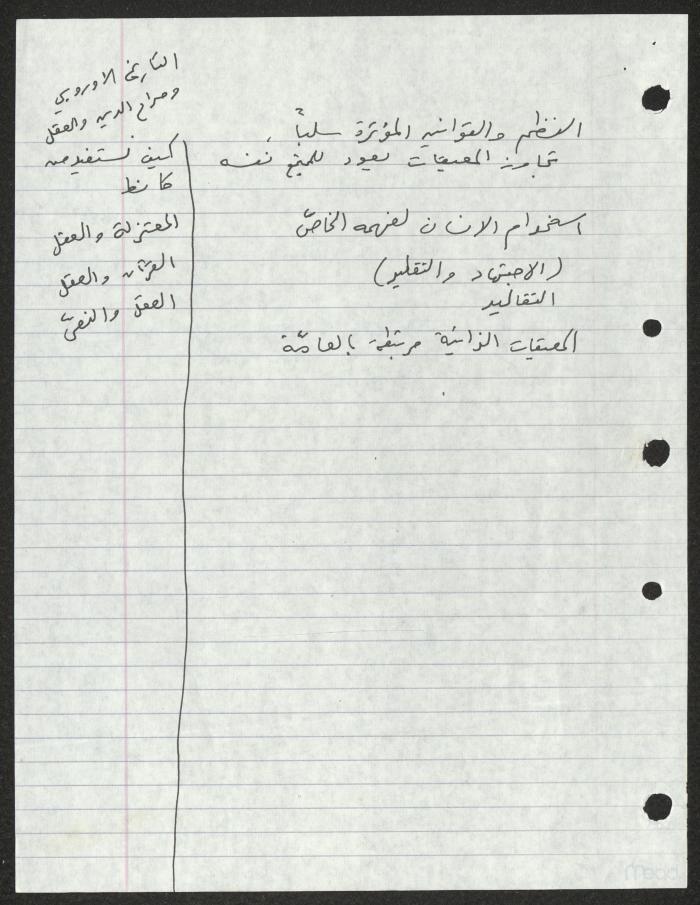 النظم والقوانين المؤثرة سلباً
تجاوز المعيقات يعود للمجتمع نفسه
استخدام الانسان لفهمه الخاصّ
(الاجتهاد والتقليد)
التقاليد
المعيقات الذاتية مرتبطة بالعامّة
التاريخ الاوروبي
وصراع الدين والعقل
كيف نستفيد من
كانط
المعتزلة والعقل
القرآن والعقل
العقل والنصّ
Mead